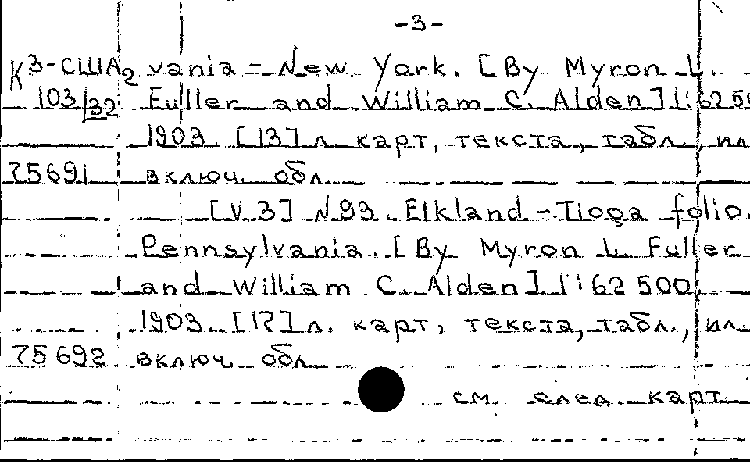 -3-
К3-США2 vania - New York. [By Myron L.
103/32 Fuller and William C. Alden] 1:62 50
1903 [13] л. карт, текста, табл, ил
75691 включ. обл.
[V.3] N 93. Elkland - Tioga folio.
Pennsylvania. [By Myron L. Fuller
and William C. Alden] 1:62 500,
1903. [17] л. карт, текста, табл., ил
75692 включ. обл
см. след. карт